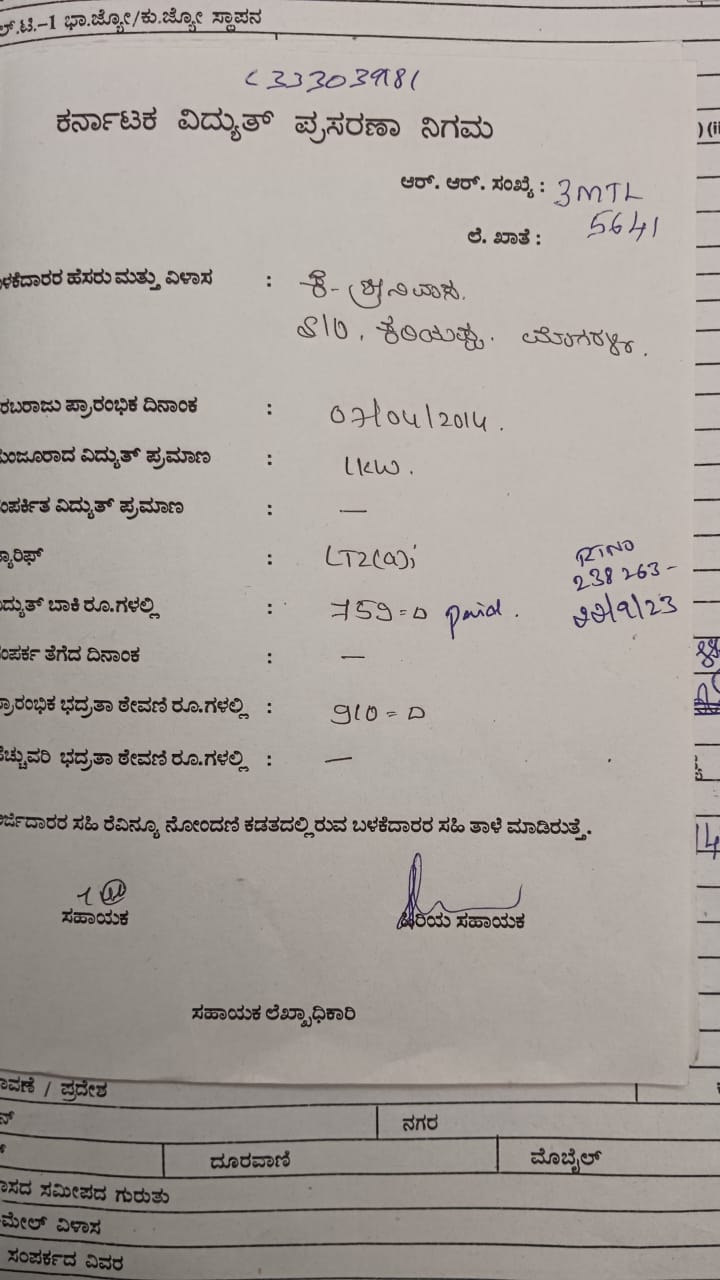 ಲ್.ಟಿ.-1 ಭಾ.ಜ್ಯೋ/ಕು.ಜ್ಯೋ ಸ್ಥಾಪನ
ಕರ್ನಾಟಕ ವಿದ್ಯುತ್ ಪ್ರಸರಣಾ ನಿಗಮ
ಆರ್. ಆರ್. ಸಂಖ್ಯೆ : 3MTL
5641
ಲೆ. ಖಾತೆ :
ಳಕೆದಾರರ ಹೆಸರು ಮತ್ತು ವಿಳಾಸ : ಕೆ- ಶ್ರೀನಿವಾಸ.
S/O.
ರಬರಾಜು ಪ್ರಾರಂಭಿಕ ದಿನಾಂಕ : 07/04/2014.
ಮಂಜೂರಾದ ವಿದ್ಯುತ್ ಪ್ರಮಾಣ : 1KW.
ಸಂಪರ್ಕಿತ ವಿದ್ಯುತ್ ಪ್ರಮಾಣ : —
ಟ್ಯಾರಿಫ್ : LT2(a)i
238263-
ದ್ಯುತ್ ಬಾಕಿ ರೂ.ಗಳಲ್ಲಿ : 759=0 paid. 22/9/23
ಸಂಪರ್ಕ ತೆಗೆದ ದಿನಾಂಕ : —
ಪ್ರಾರಂಭಿಕ ಭದ್ರತಾ ಠೇವಣಿ ರೂ.ಗಳಲ್ಲಿ : 910=0
ಹೆಚ್ಚುವರಿ ಭದ್ರತಾ ಠೇವಣಿ ರೂ.ಗಳಲ್ಲಿ : —
ರ್ಜಿದಾರರ ಸಹಿ ರೆವಿನ್ಯೂ ನೋಂದಣಿ ಕಡತದಲ್ಲಿರುವ ಬಳಕೆದಾರರ ಸಹಿ ತಾಳೆ ಮಾಡಿರುತ್ತೆ.
ಸಹಾಯಕ ಹಿರಿಯ ಸಹಾಯಕ
ಸಹಾಯಕ ಲೆಖ್ಖಾಧಿಕಾರಿ
ಾವಣೆ / ಪ್ರದೇಶ
ನಗರ
ದೂರವಾಣಿ ಮೊಬೈಲ್
ಾಸದ ಸಮೀಪದ ಗುರುತು
ಮೇಲ್ ವಿಳಾಸ
ಸಂಪರ್ಕದ ವಿವರ